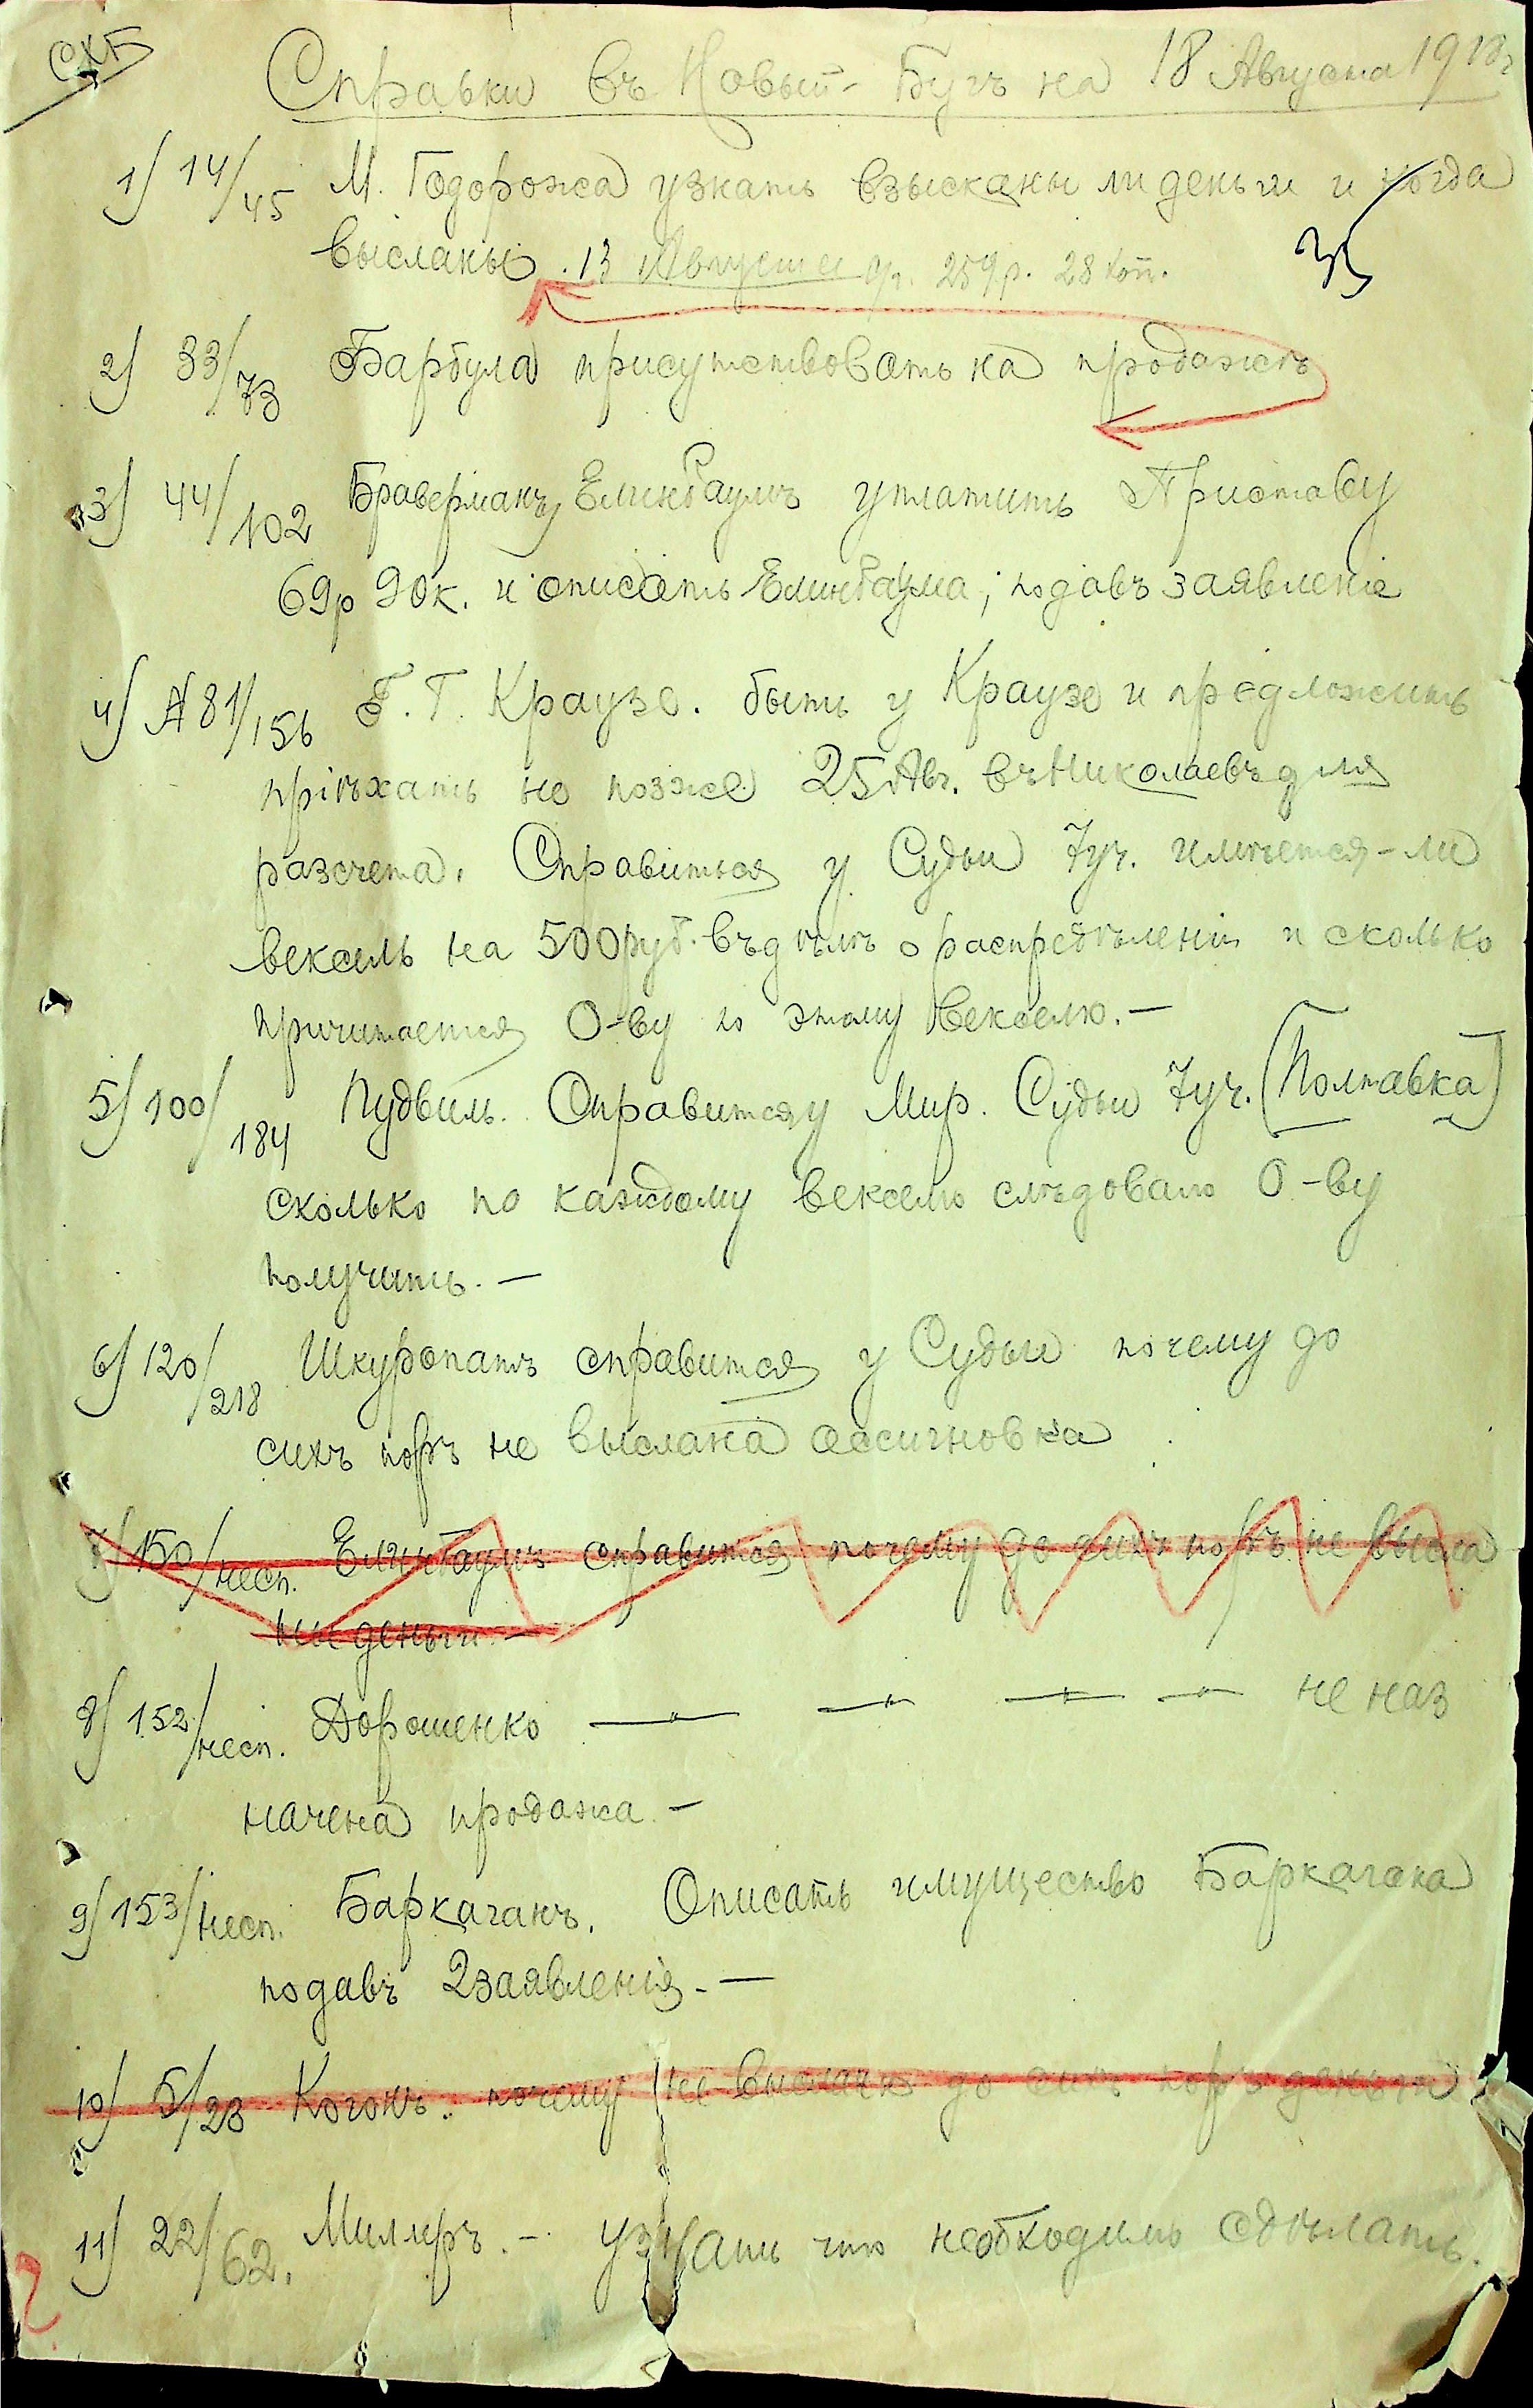 СХБ
Справки въ Новый-Бугъ на 18 Августа 1913г
1) 14/45 М. Годорожа узнать взысканы ли деньги и когда
высланы. 13 Августа 259р. 28 коп.
35
2) 33/73 Барбула присутствовать на продажѣ
3) 44/102 Браверманъ, Елинбаумъ уплатить Приставу
69р 90к. и описать Елинбаума, подавъ заявленіе
4) А 81/156 Г. Г. Краузе. быть у Краузе и предложить
пріѣхать не позже 25 Авг. въ Николаевъ для
разсчета. Справиться у Судьи 7 уч. имѣется-ли
вексель на 500 руб. въ дѣлѣ о распредѣленіи и сколько
причитается О-ву по этому векселю.—
5) 100/184 Пудвиль. Справится у Мир. Судьи 7 уч. (Полтавка)
сколько по каждому векселю слѣдовало О-ву
получить.—
6) 120/218 Шкуропатъ справится у Судьи почему до
сихъ поръ не выслана ассигновка
7) 150/несп. Елинбаумъ справится почему до сихъ поръ не высла
ны деньги.—
8) 152/несп. Дорошенко —"— —"— —"— —"— не наз
начена продажа.—
9) 153/несп. Баркаганъ. Описать имущество Баркагана
подавъ 2 заявленія.—
10) 5/23 Коганъ. почему не высланы до сихъ поръ деньги
11) 22/62. Миллеръ.— узнать что необходимо сдѣлать.